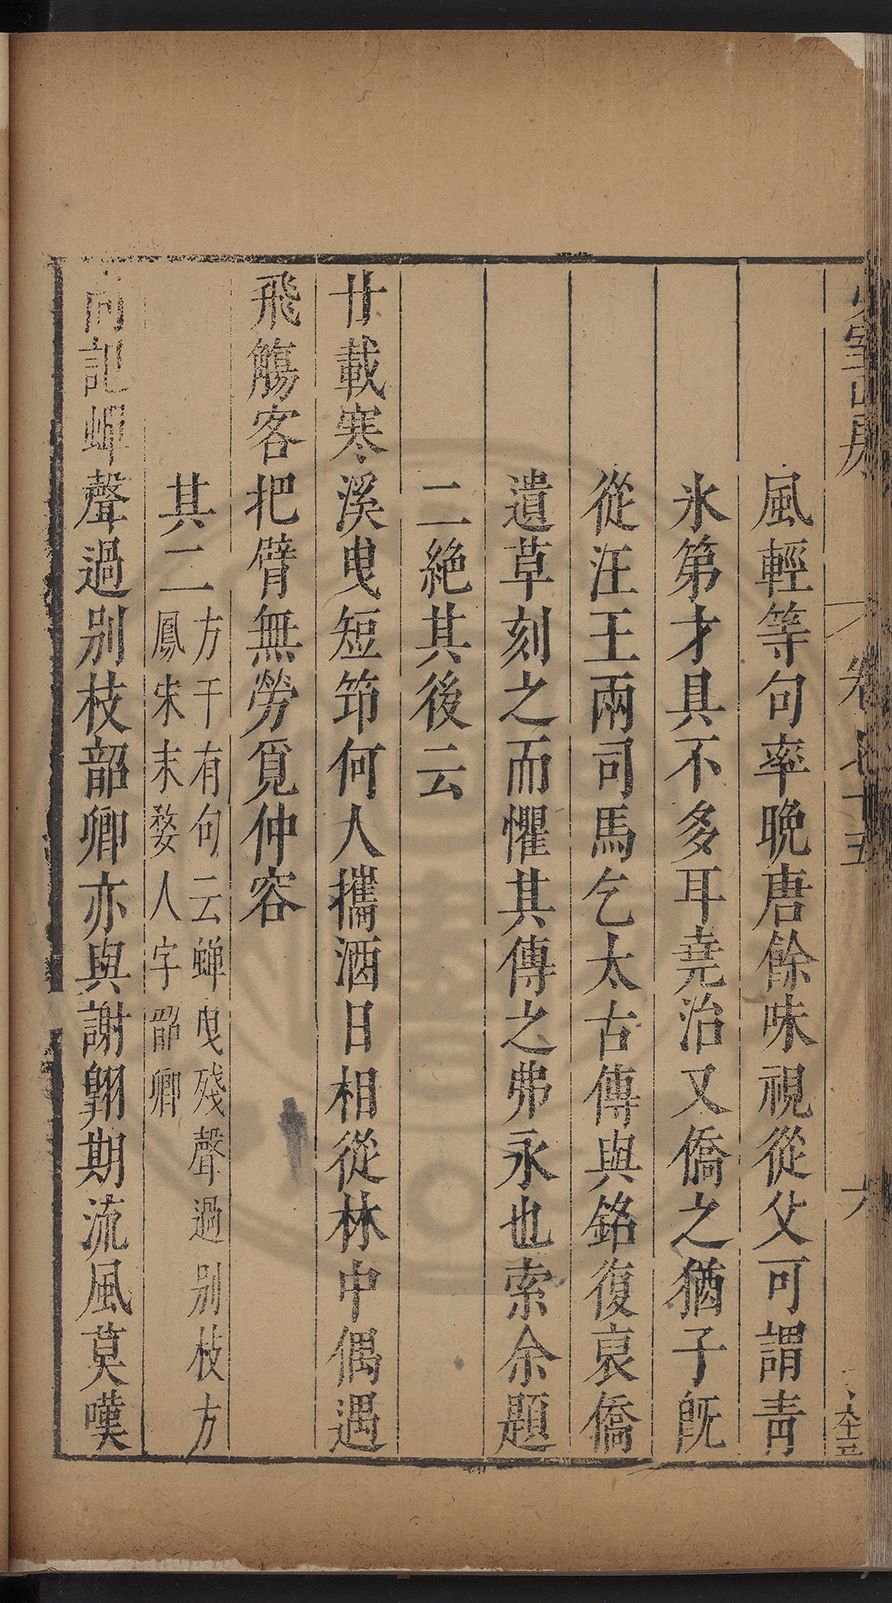 少室山房
卷七十五
六
風輕等句率晚唐餘味視從父可謂青
氷第才具不多耳堯治又僑之猶子旣
從汪王兩司馬乞太古傳與銘復裒僑
遺草刻之而懼其傳之弗永也索余題
二絶其後云
廿載寒溪曳短笻何人攜酒日相從林中偶遇
飛觴客把臂無勞覓仲容
其二
方干有句云蟬曳殘聲過别枝方
鳳宋末婺人字韶卿
尚記蟬聲過别枝韶卿亦與謝翱期流風莫嘆